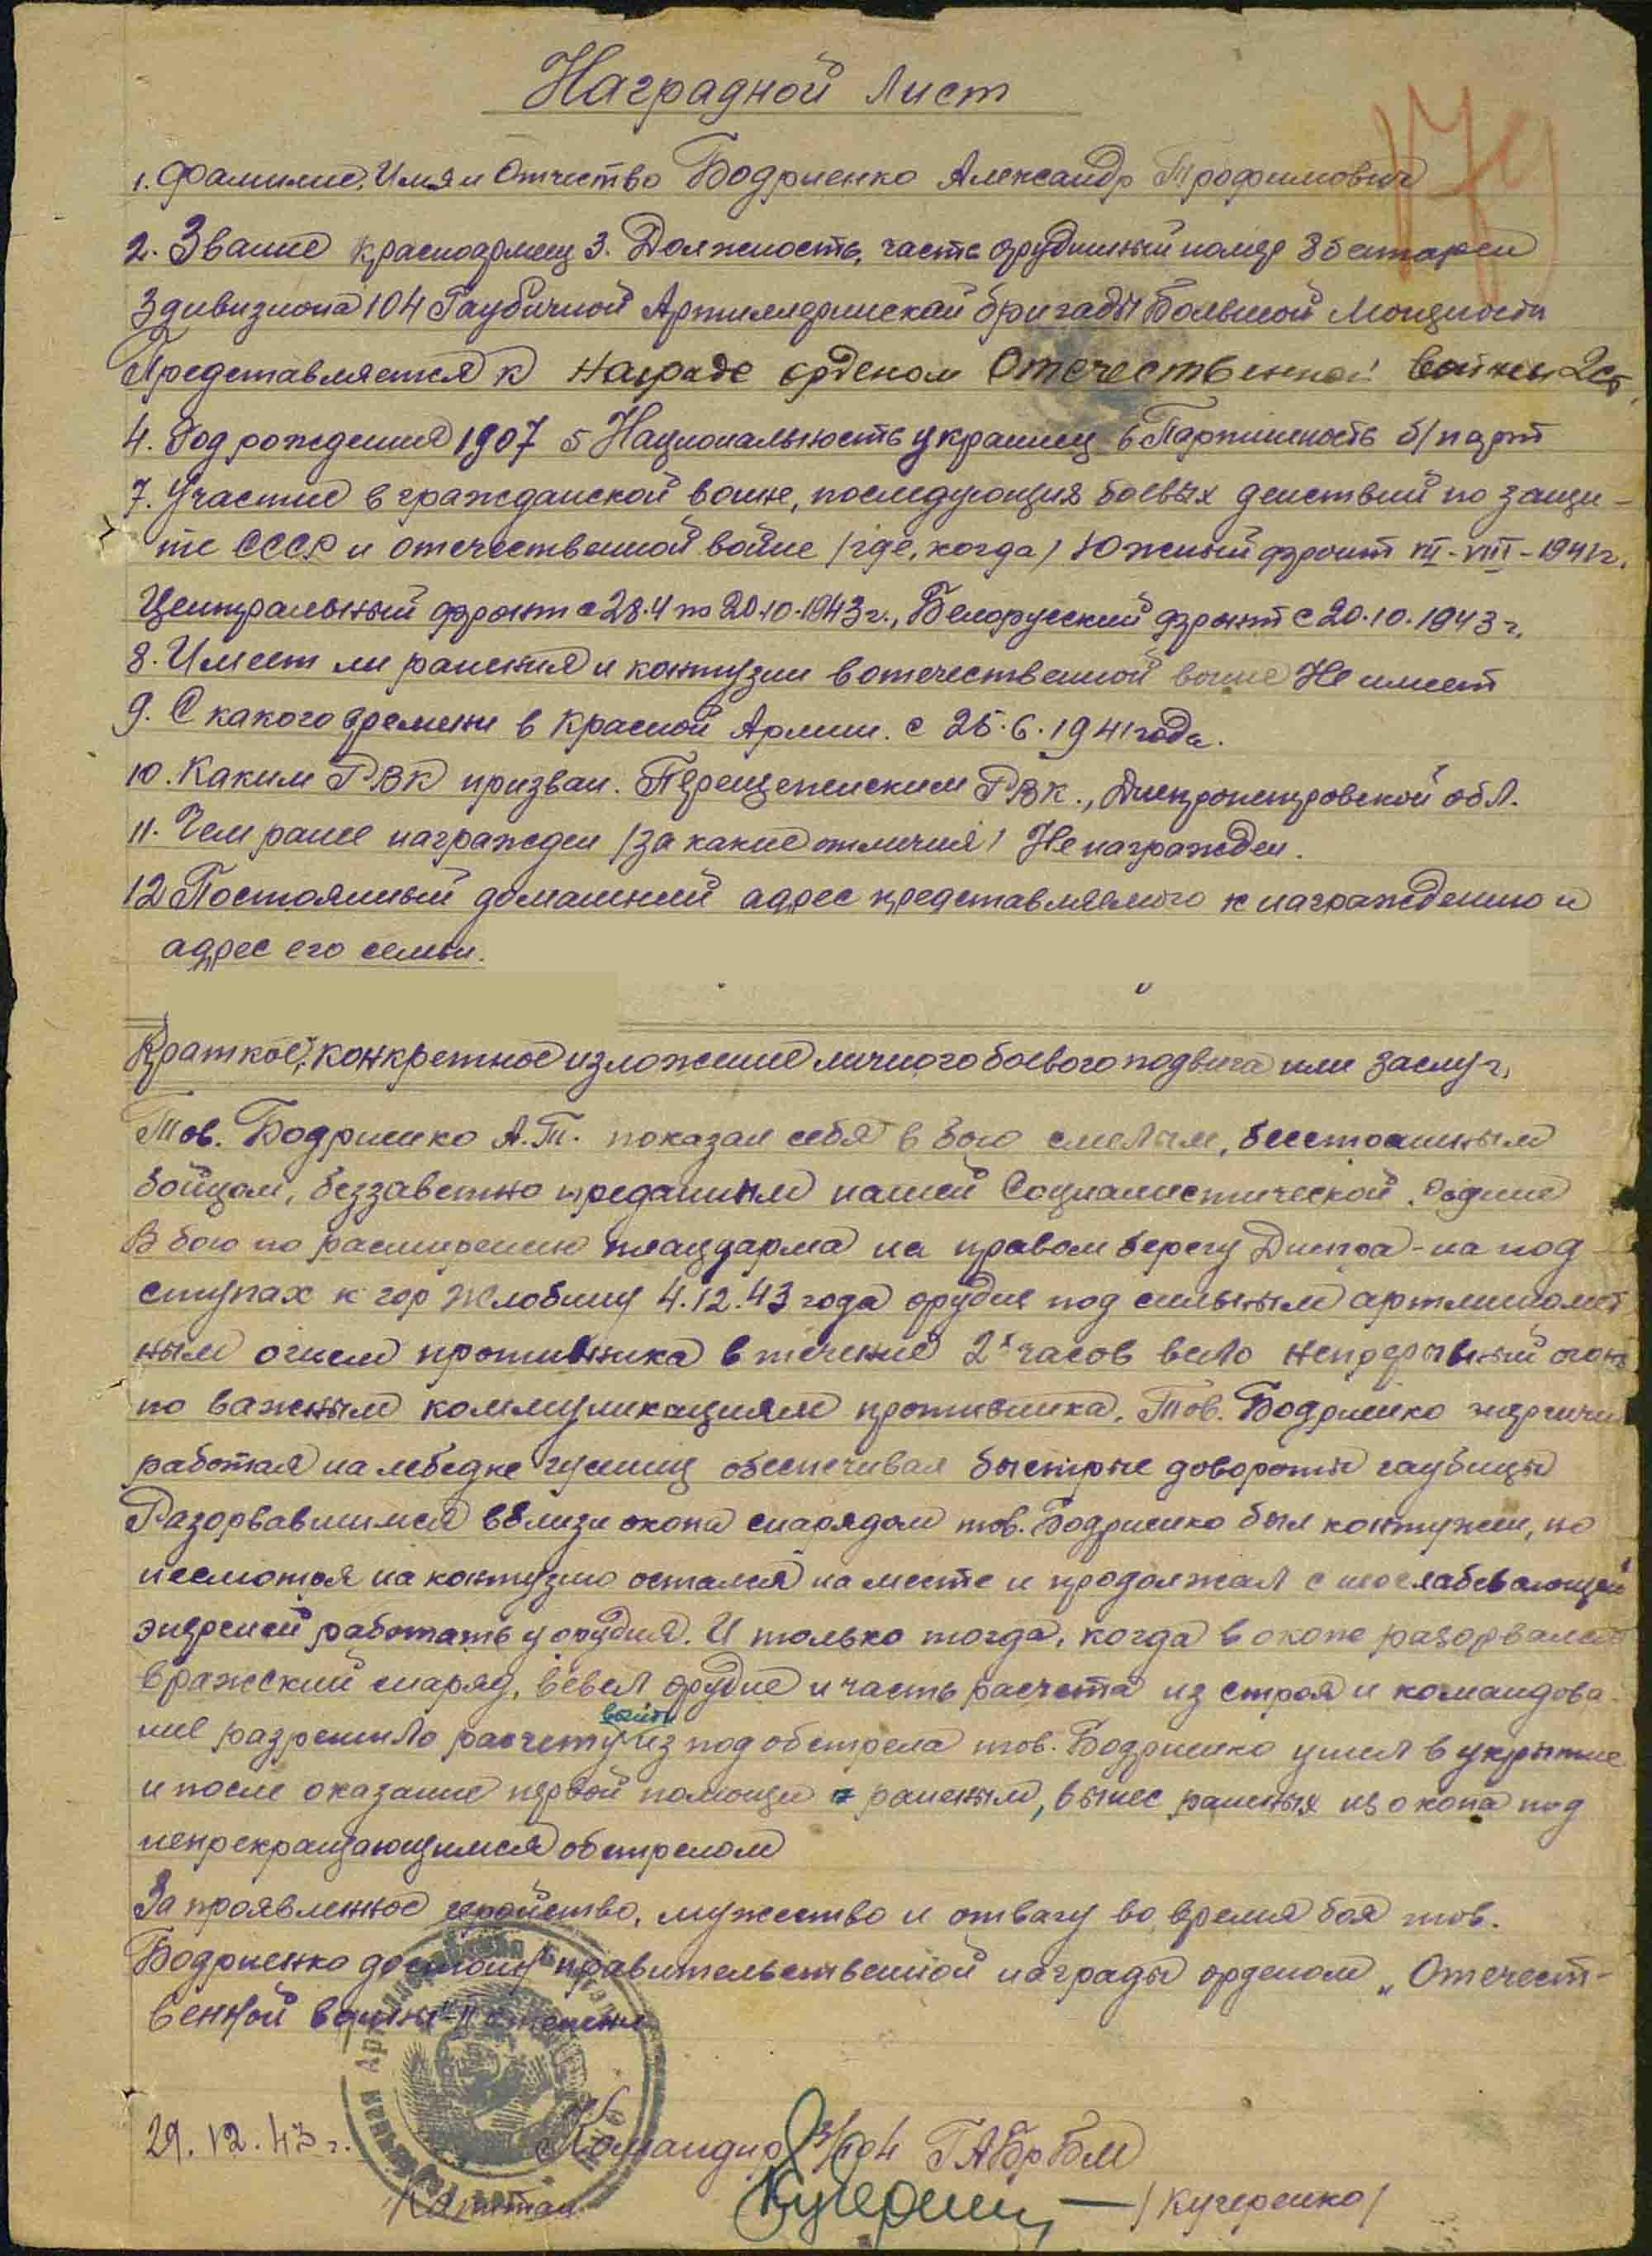 Наградной Лист
179
1. Фамилие, Имя и Отчество Бодриенко Александр Трофимович
2. Звание красноармеец 3. Должность, часть орудийный номер 8 батареи
3 дивизиона 104 Гаубичной Артиллерийской бригады Большой Мощности
Представляется к награде орденом Отечественной войны 2 ст.
4. Год рождения 1907 5 Национальность украинец 6 Партийность б/парт
7. Участие в гражданской войне, последующих боевых действий по защи-
те СССР и отечественной войне /где, когда/ Южный фронт VII-VIII-1941г.
Центральный фронт с 28.4 по 20.10.1943г., Белорусский фронт с 20.10.1943г.
8. Имеет ли ранения и контузии в отечественной войне Не имеет
9. С какого времени в Красной Армии. с 25.6.1941 года.
10. Каким РВК призван. Перещепенским РВК., Днепропетровской обл.
11. Чем ранее награжден /за какие отличия/ Не награжден.
12 Постоянный домашний адрес представляемого к награждению и
адрес его семьи.
Краткое, конкретное изложение личного боевого подвига или заслуг.
Тов. Бодриенко А.Т. показал себя в бою смелым, бесстрашным
бойцом, беззаветно преданным нашей Социалистической Родине
В бою по расширению плацдарма на правом берегу Днепра - на под-
ступах к гор Жлобину 4.12.43 года орудие под сильным артминомет
ным огнем противника в течение 2х часов вело непрерывный огонь
по важным коммуникациям противника. Тов. Бодриенко энергично
работая на лебедке гусениц обеспечивал быстрые довороты гаубицы
Разорвавшимся вблизи окопа снарядом тов. Бодриенко был контужен, но
несмотря на контузию остался на месте и продолжал с неослабевающей
энергией работать у орудия. И только тогда, когда в окопе разорвался
вражеский снаряд, вывел орудие и часть расчета из строя и командова-
ние разрешило расчету выйти из под обстрела тов. Бодриенко ушел в укрытие
и после оказание первой помощи раненым, вынес раненых из окопа под
непрекращающимся обстрелом
За проявленное геройство, мужество и отвагу во время боя тов.
Бодриенко достоин правительственной награды орденом „Отечест-
венной войны" II степени
29.12.43 г.
Командир 3/104 ГАБр БМ
Капитан
/Кучеренко/